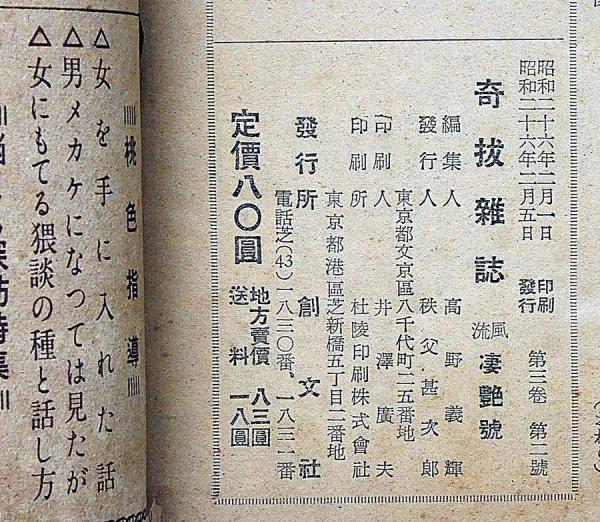 昭和二十六年二月一日 印刷
昭和二十六年二月五日 發行
第三卷 第二號
奇拔雜誌 風流 凄艶號
編集人 高野義輝
發行人 秩父甚次郎
東京都文京區八千代町二五番地
印刷人 井澤廣夫
印刷所 杜陵印刷株式會社
東京都港區芝新橋五丁目二番地
發行所 創文社
電話芝(43)一八三〇番、一八三一番
定價八〇圓
地方賣價 八三圓
送料 一八圓
桃色指導
△女を手に入れた話
△男メカケになつては見たが
△女にもてる猥談の種と話し方